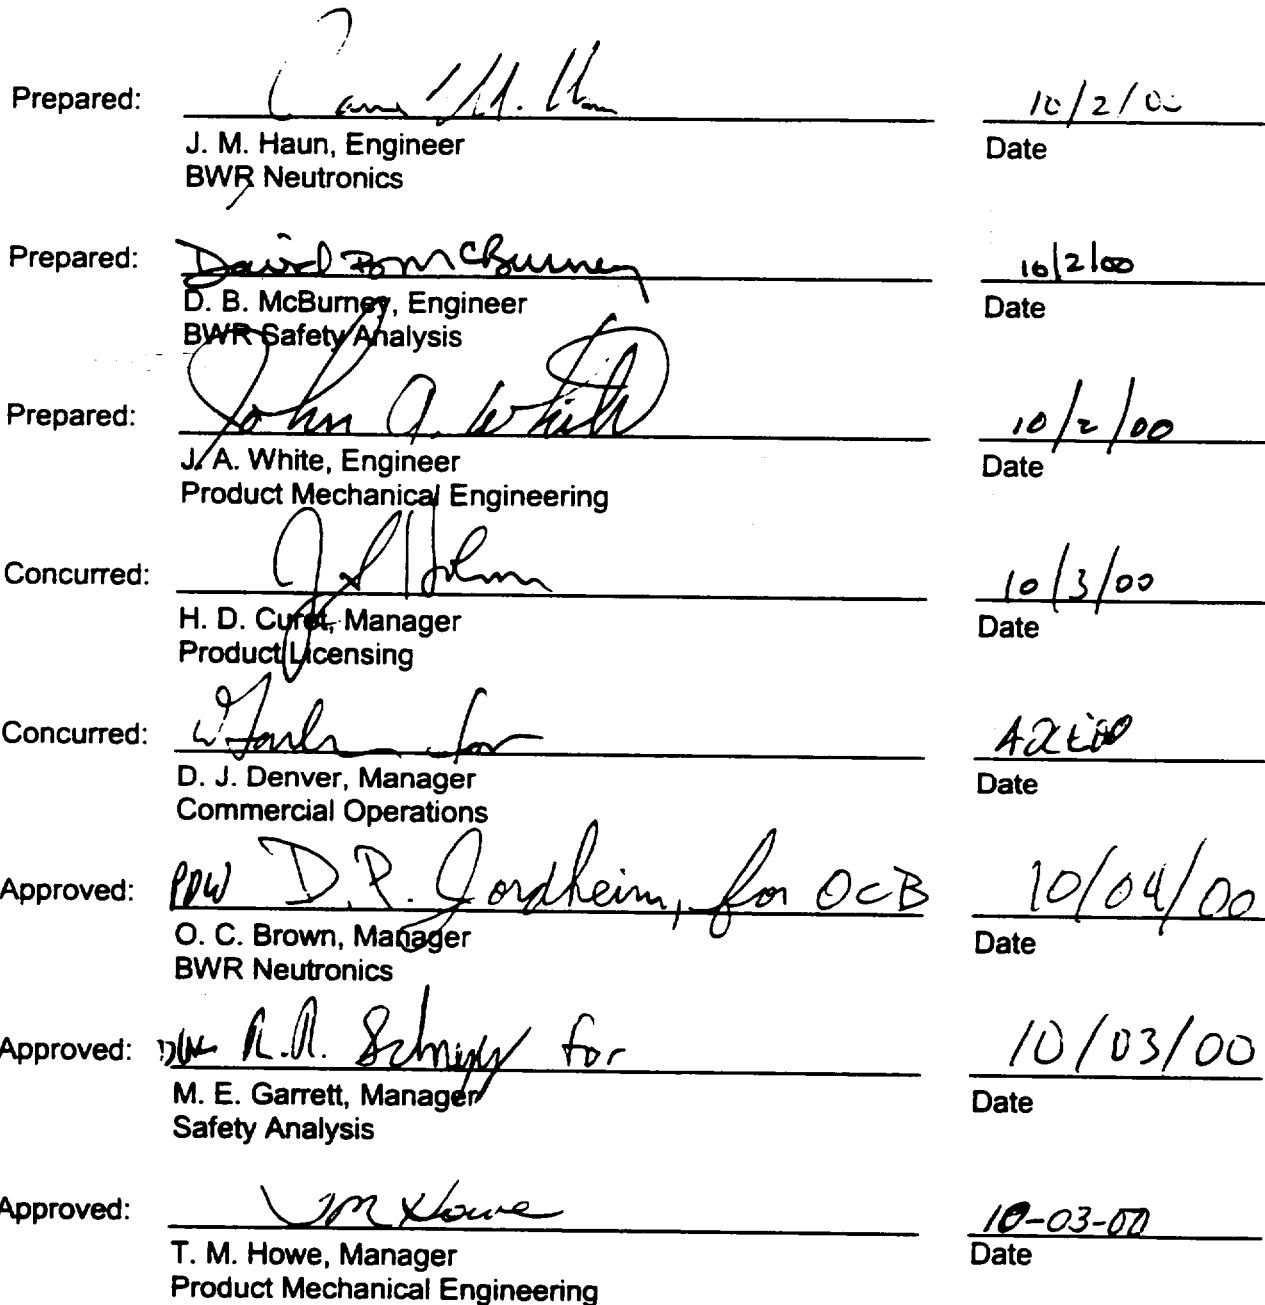 Prepared: M. 10/2/00
J. M. Haun, Engineer Date
BWR Neutronics
Prepared: David B McBurney 10/2/00
D. B. McBurney, Engineer Date
BWR Safety Analysis
Prepared: John A. White 10/2/00
J. A. White, Engineer Date
Product Mechanical Engineering
Concurred: J S Holm 10/3/00
H. D. Curet, Manager Date
Product Licensing
Concurred: for
D. J. Denver, Manager Date
Commercial Operations
Approved: PDW D. P. Jordheim, for OCB 10/04/00
O. C. Brown, Manager Date
BWR Neutronics
Approved: R.R. for 10/03/00
M. E. Garrett, Manager Date
Safety Analysis
Approved: TM Howe 10-03-00
T. M. Howe, Manager Date
Product Mechanical Engineering